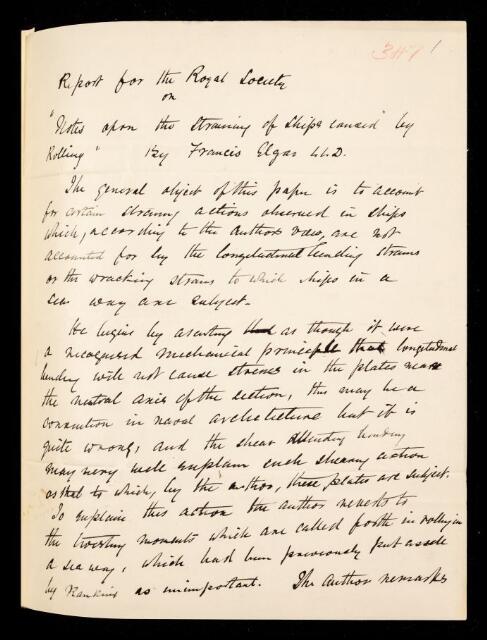 1
Report for the Royal Society
on
"Notes upon the straining of ships caused by
Rolling" By Francis Elgar LL.D.
The general object of this paper is to account
for certain straining actions observed in ships
which, according to the authors view, are not
accounted for by the longitudinal bending strains
or the wracking strains to which ships in a
sea way are subject.
He begins by asserting that as though it were
a recognised mechanical principle that longitudinal
bending will not cause stresses in the plates near
the neutral axis of the section, this may be a
convention in naval architecture but it is
quite wrong; and the shear attending bending
may very well explain such shearing action
as that to which, by the author, these plates are subject.
To explain this action the author reverts to
the twisting moments which are called forth in rolling in
a sea way, which had been previously put aside
by Rankine as unimportant. The Author remarks